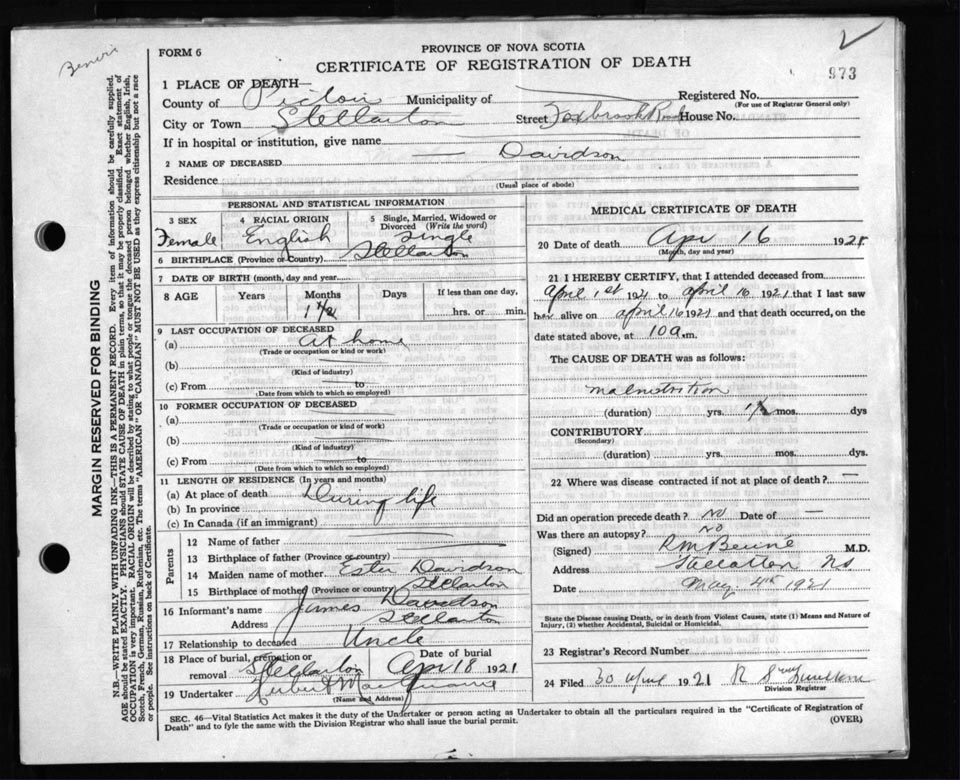 FORM 6
PROVINCE OF NOVA SCOTIA
CERTIFICATE OF REGISTRATION OF DEATH
973
1 PLACE OF DEATH—
County of Pictou Municipality of
Registered No.
(For use of Registrar General only)
City or Town Stellarton Street Foxbrook Road House No.
If in hospital or institution, give name
2 NAME OF DECEASED — Davidson
Residence
(Usual place of abode)
PERSONAL AND STATISTICAL INFORMATION
3 SEX
Female
4 RACIAL ORIGIN
English
5 Single, Married, Widowed or Divorced (Write the word)
Single
6 BIRTHPLACE (Province or Country) Stellarton
7 DATE OF BIRTH (month, day and year)
8 AGE Years Months Days If less than one day,
1 1/2 hrs. or min.
9 LAST OCCUPATION OF DECEASED
(a) At home
(Trade or occupation or kind or work)
(b)
(Kind of industry)
(c) From to
(Date from which to which so employed)
10 FORMER OCCUPATION OF DECEASED
(a)
(Trade or occupation or kind or work)
(b)
(Kind of industry)
(c) From to
(Date from which to which so employed)
11 LENGTH OF RESIDENCE (In years and months)
(a) At place of death During life
(b) In province
(c) In Canada (if an immigrant)
Parents
12 Name of father
13 Birthplace of father (Province or country)
14 Maiden name of mother Ester Davidson
15 Birthplace of mother (Province or Country) Stellarton
16 Informant's name James Davidson
Address Stellarton
17 Relationship to deceased Uncle
18 Place of burial, cremation or removal Stellarton
Date of burial
Apr 18 1921
19 Undertaker
(Name and Address)
MEDICAL CERTIFICATE OF DEATH
20 Date of death Apr 16 1921
(Month, day and year)
21 I HEREBY CERTIFY, that I attended deceased from
April 1st 1921 to April 16 1921 that I last saw
her alive on april 16 1921 and that death occurred, on the
date stated above, at 10 a. m.
The CAUSE OF DEATH was as follows:
malnutrition
(duration) yrs. 1 1/2 mos. dys
CONTRIBUTORY
(Secondary)
(duration) yrs. mos. dys.
22 Where was disease contracted if not at place of death? —
Did an operation precede death? No Date of —
Was there an autopsy? No
(Signed) M.D.
Address Stellarton NS
Date May 4th 1921
State the Disease causing Death, or in death from Violent Causes, state (1) Means and Nature of Injury, (2) whether Accidental, Suicidal or Homicidal.
23 Registrar's Record Number
24 Filed 30 april 1921
Division Registrar
SEC. 46—Vital Statistics Act makes it the duty of the Undertaker or person acting as Undertaker to obtain all the particulars required in the "Certificate of Registration of
Death" and to fyle the same with the Division Registrar who shall issue the burial permit.
(OVER)
MARGIN RESERVED FOR BINDING
N.B.—WRITE PLAINLY WITH UNFADING INK—THIS IS A PERMANENT RECORD. Every item of information should be carefully supplied.
AGE should be stated EXACTLY. PHYSICIANS should STATE CAUSE OF DEATH in plain terms, so that it may be properly classified. Exact statement of
OCCUPATION is very important. RACIAL ORIGIN will be described by stating to what people or tongue the deceased person belonged whether English, Irish,
Scotch, French, German, Russian, Ruthenian, etc. The terms "AMERICAN" OR "CANADIAN" MUST NOT BE USED as they express citizenship but not a race
or people. See instructions on back of Certificate.